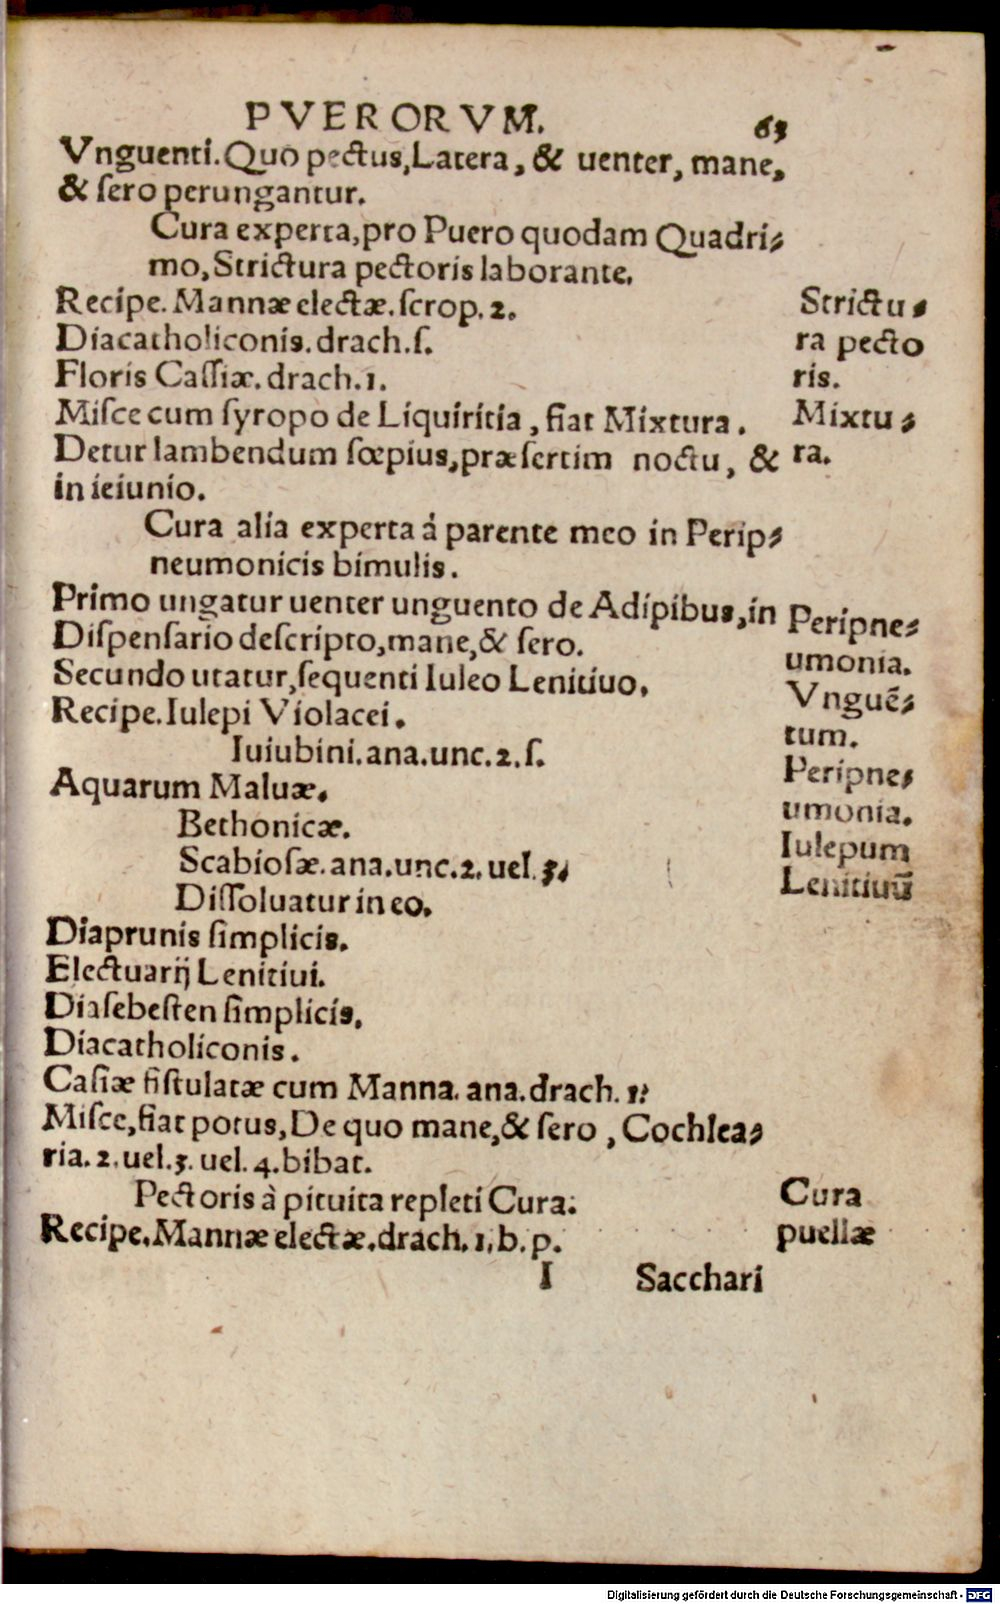 PVERORVM. 65
Vnguenti. Quo pectus, Latera, & uenter, mane,
& ſero perungantur.
Cura experta, pro Puero quodam Quadri⸗
mo, Strictura pectoris laborante.
Recipe. Mannæ electæ. ſcrop. 2.
Diacatholiconis. drach. ſ.
Floris Caſſiæ. drach. 1.
Miſce cum ſyropo de Liquiritia, fiat Mixtura.
Detur lambendum ſœpius, præſertim noctu, &
in ieiunio.
Strictu⸗
ra pecto
ris.
Mixtu⸗
ra.
Cura alia experta á parente meo in Perip⸗
neumonicis bimulis.
Primo ungatur uenter unguento de Adipibus, in
Diſpenſario deſcripto, mane, & ſero.
Secundo utatur, ſequenti Iuleo Lenitiuo.
Recipe. Iulepi Violacei.
Iuiubini. ana. unc. 2. ſ.
Aquarum Maluæ.
Bethonicæ.
Scabioſæ. ana. unc. 2. uel. 3.
Diſſoluatur in eo.
Peripne⸗
umonia.
Vnguē⸗
tum.
Peripne⸗
umonia.
Iulepum
Lenitiuū
Diaprunis ſimplicis.
Electuarij Lenitiui.
Diaſebeſten ſimplicis.
Diacatholiconis.
Caſiæ fiſtulatæ cum Manna. ana. drach. 1.
Miſce, fiat potus, De quo mane, & ſero, Cochlea⸗
ria. 2. uel. 3. uel. 4. bibat.
Pectoris à pituita repleti Cura.
Recipe. Mannæ electæ. drach. 1. b. p.
Cura
puellæ
I Sacchari
Digitalisierung gefördert durch die Deutsche Forschungsgemeinschaft - DFG